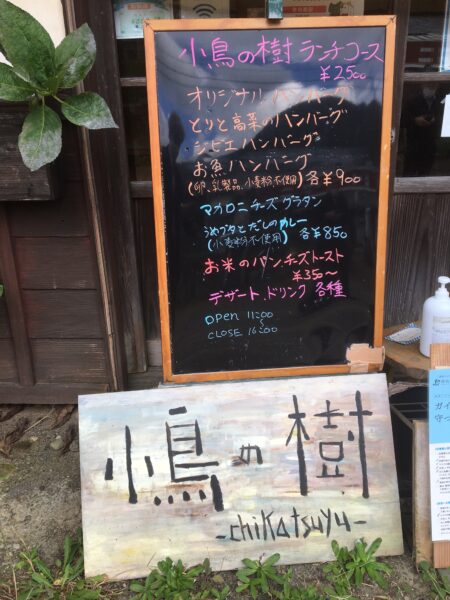 小鳥の樹 ランチコース
¥2500
オリジナルハンバーグ
とりと高菜のハンバーグ
ジビエハンバーグ
お魚ハンバーグ
(卵、乳製品、小麦粉不使用) 各¥900
マカロニチーズグラタン
うめブタとだしのカレー
(小麦粉不使用) 各¥850
お米のパンチーズトースト
¥350〜
デザート・ドリンク 各種
OPEN 11:00
〜
CLOSE 16:00
小鳥の樹
-chikatsuyu-